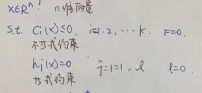 x∈Rⁿ: n维向量
s.t. Cᵢ(x)≤0. i=1.2,…k. k=0.
不等式约束
hⱼ(x)=0 j=1=1.. l l=0.
等式约束